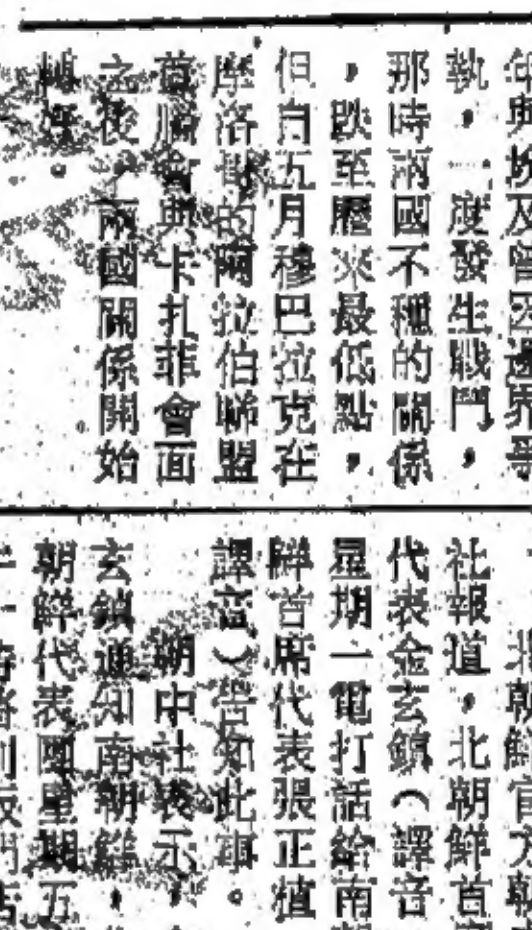 年與埃及曾因邊界爭
執，一度發生戰鬥，
那時兩國不穩的關係
，跌至歷來最低點，
但自五月穆巴拉克在
摩洛哥的阿拉伯聯盟
首腦會與卡扎菲會面
之後，兩國關係開始
轉好。
北朝鮮官方
社報道，北朝鮮首
代表金玄鎖（譯音
星期一電打話給南
鮮首席代表張正植
譯音）告知此事。
朝中社表示，
玄鎖通知南朝鮮，
朝鮮代表團星期五